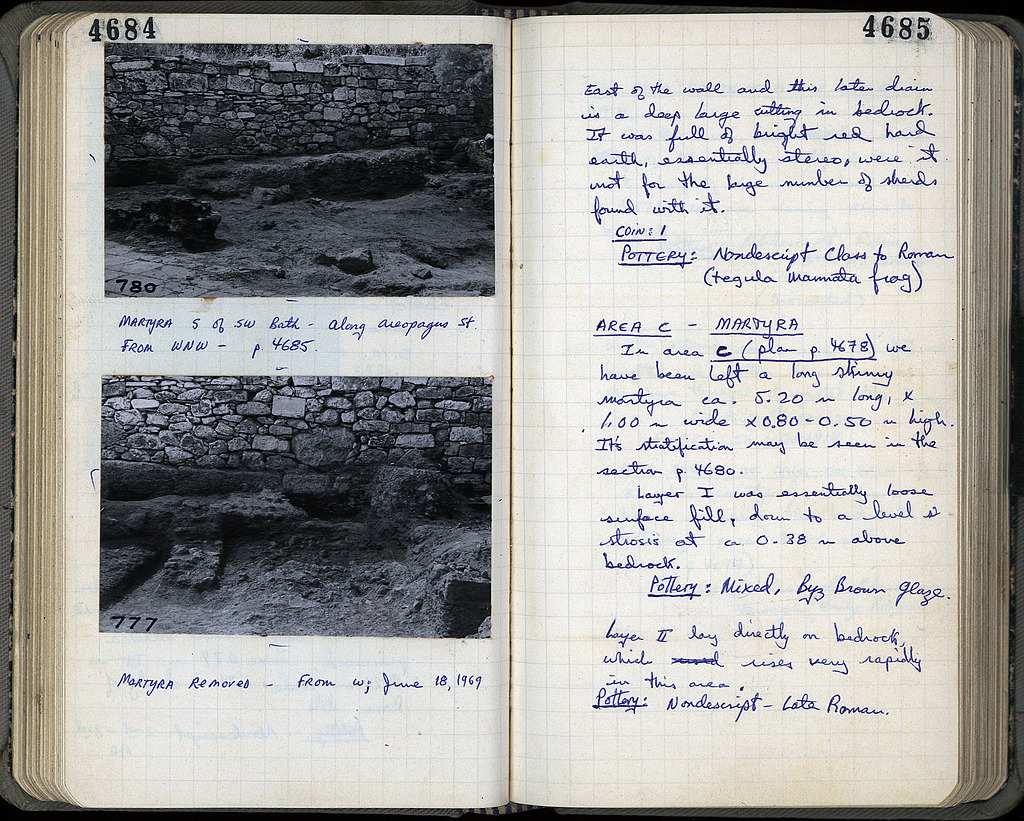 4684
780
MARTYRA S of SW Bath - along Areopagus St.
FROM WNW - p. 4685.
777
MARTYRA REMOVED - FROM W; June 18, 1969
4685
East of the wall and this later drain
is a deep large cutting in bedrock.
It was full of bright red hard
earth, essentially stereo, were it
not for the large number of sherds
found with it.
COIN: 1
POTTERY: Nondescript Class to Roman
(tegula mammata frag)
AREA C - MARTYRA
In area C (plan p. 4678) we
have been left a long skinny
martyra ca. 5.20 m long, x
1.00 m wide x 0.80-0.50 m high.
It's stratification may be seen in the
section p. 4680.
Layer I was essentially loose
surface fill, down to a level of
strosis at ca 0.38 m above
bedrock.
Pottery: Mixed, Byz Brown Glaze.
Layer II lay directly on bedrock,
which rises very rapidly
in this area.
Pottery: Nondescript - Late Roman.